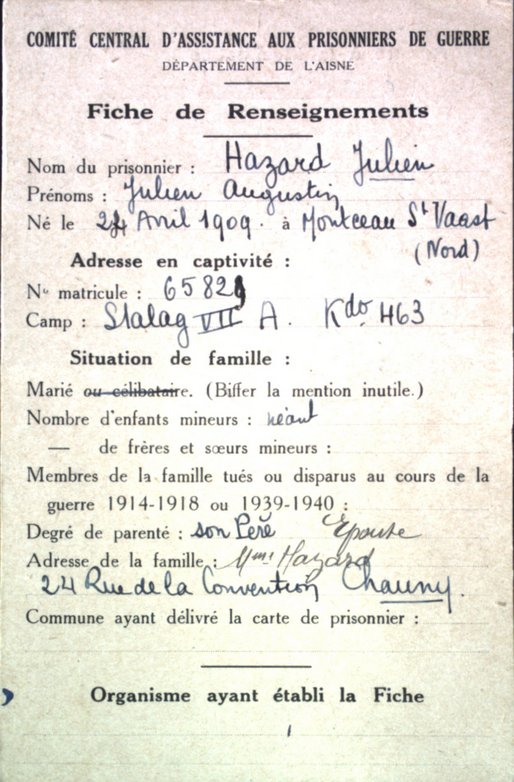 COMITÉ CENTRAL D'ASSISTANCE AUX PRISONNIERS DE GUERRE
DÉPARTEMENT DE L'AISNE
Fiche de Renseignements
Nom du prisonnier : Hazard Julien
Prénoms : Julien Augustin
Né le 24 Avril 1909. à Montceau St Vaast
(Nord)
Adresse en captivité :
No matricule : 65829
Camp : Stalag VII A. Kdo. 463
Situation de famille :
Marié ou célibataire. (Biffer la mention inutile.)
Nombre d'enfants mineurs : néant
— de frères et sœurs mineurs :
Membres de la famille tués ou disparus au cours de la
guerre 1914-1918 ou 1939-1940 :
Degré de parenté : son Père Epouse
Adresse de la famille : Mme Hazard
24 Rue de la Convention Chauny.
Commune ayant délivré la carte de prisonnier :
Organisme ayant établi la Fiche